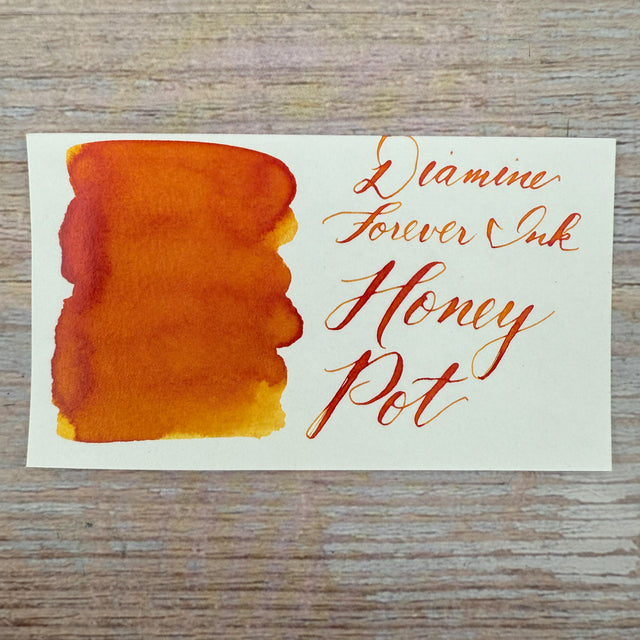 Diamine
Forever Ink
Honey
Pot